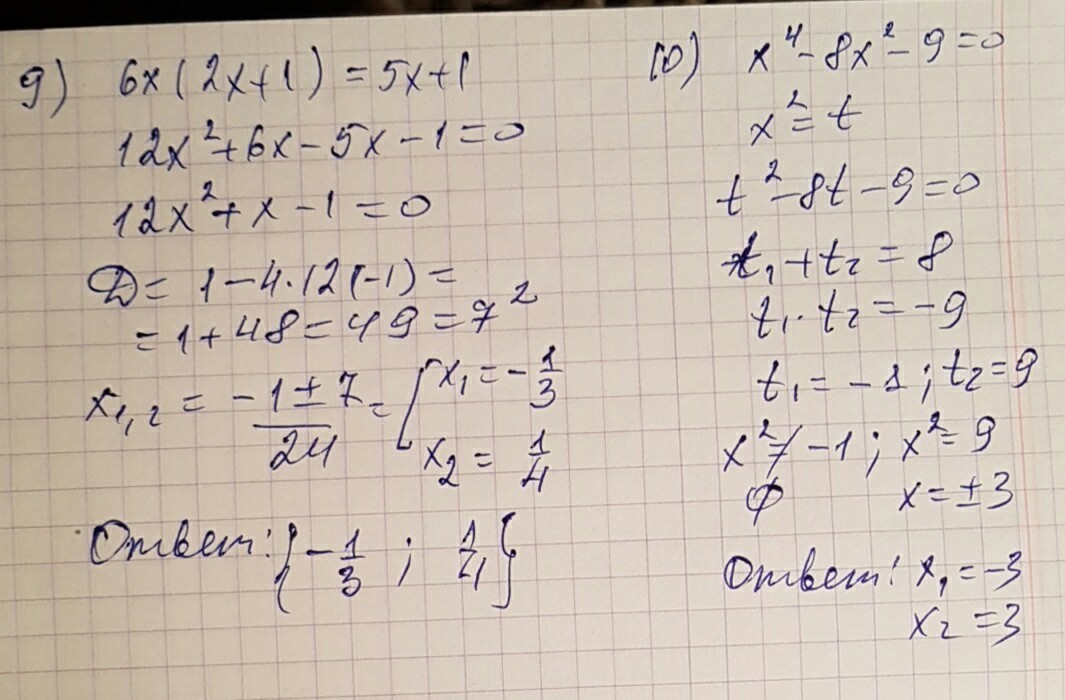 9) 6x(2x+1) = 5x+1
12x²+6x-5x-1=0
12x²+x-1=0
D= 1-4·12(-1)=
=1+48=49=7²
x₁,₂ = -1±7/24 = [x₁=-1/3
x₂ = 1/4
Ответ: {-1/3 ; 1/4}
10) x⁴-8x²-9=0
x²=t
t²-8t-9=0
t₁+t₂=8
t₁·t₂=-9
t₁=-1; t₂=9
x²≠-1; x²=9
∅ x=±3
Ответ: x₁=-3
x₂=3